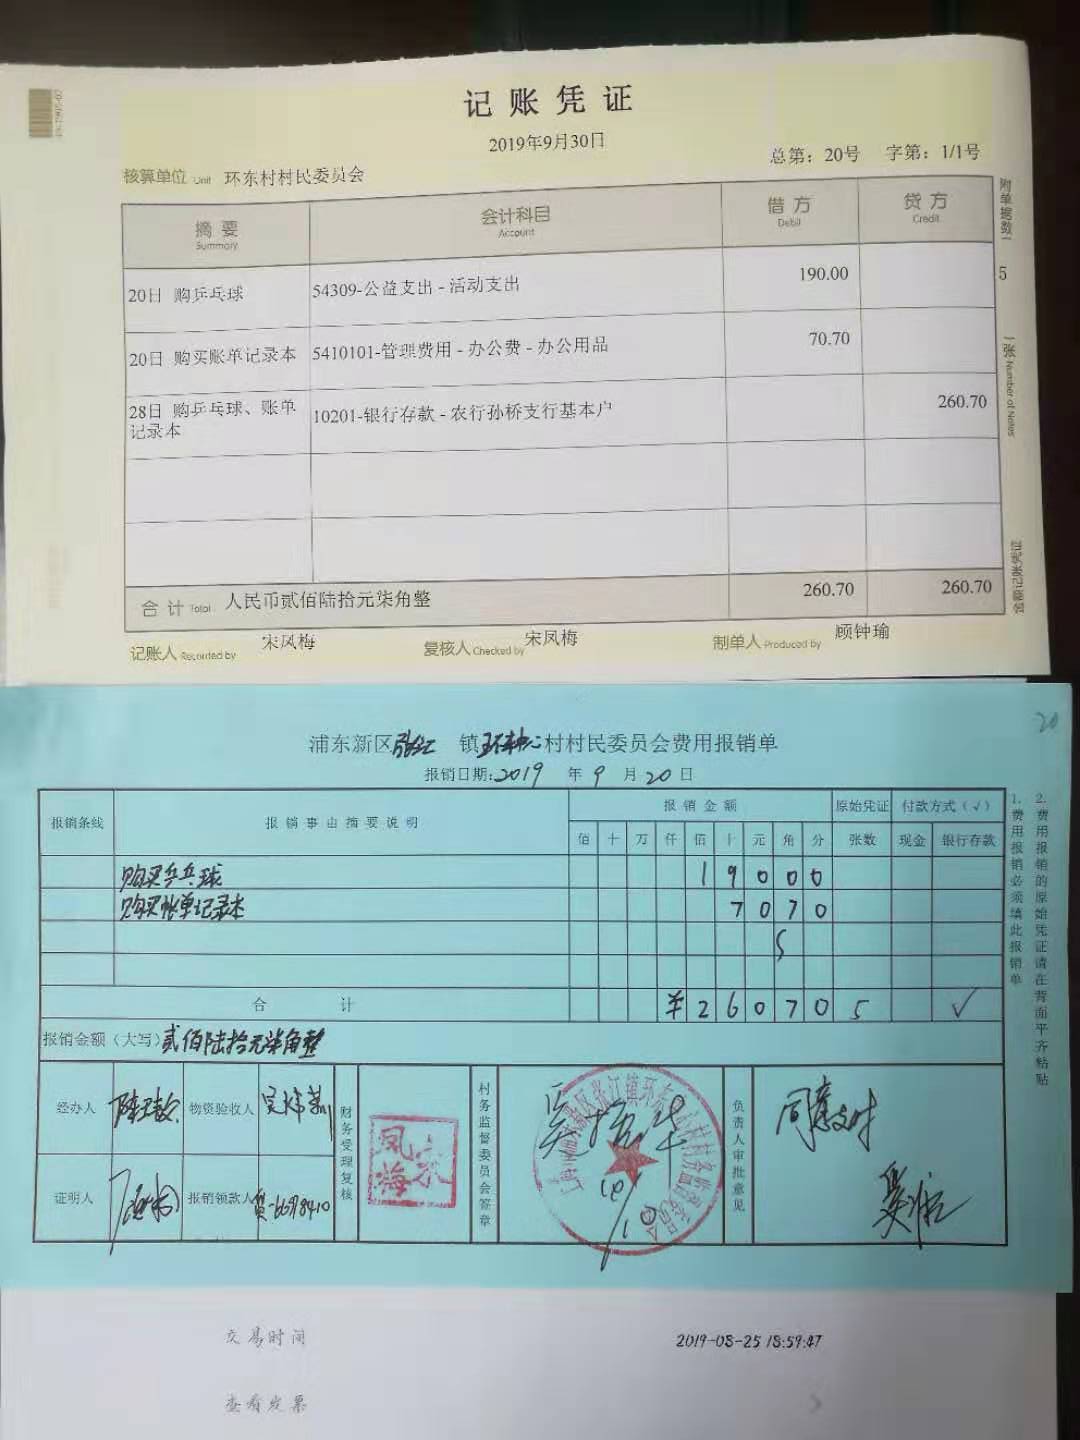 记账凭证
2019年9月30日
总第：20号 字第：1/1号
核算单位 Unit 环东村村民委员会
摘要 会计科目 借方 贷方
Summary Account Debit Credit
20日 购乒乓球 54309-公益支出-活动支出 190.00
20日 购买账单记录本 5410101-管理费用-办公费-办公用品 70.70
28日 购乒乓球、账单记录本 10201-银行存款-农行孙桥支行基本户 260.70
合计 Total 人民币贰佰陆拾元柒角整 260.70 260.70
记账人 Recorded by 宋凤梅 复核人 Checked by 宋凤梅 制单人 Produced by 顾钟瑜
附单据数 5 张 Number of Notes
20
浦东新区张江镇环东中心村村民委员会费用报销单
报销日期:2019年9月20日
报销条线 报销事由摘要说明 报销金额 原始凭证 付款方式(√)
佰 十 万 仟 佰 十 元 角 分 张数 现金 银行存款
购买乒乓球 1 9 0 0 0
购买帐单记录本 7 0 7 0
合计 ¥ 2 6 0 7 0 5 √
报销金额(大写) 贰佰陆拾元柒角整
经办人 物资验收人 财务受理复核 村务监督委员会签章 负责人审批意见 同意支付
证明人 报销领款人
1.费用报销必须填此报销单
2.费用报销的原始凭证请在背面平齐粘贴
交易时间 2019-08-25 18:59:47
查看发票